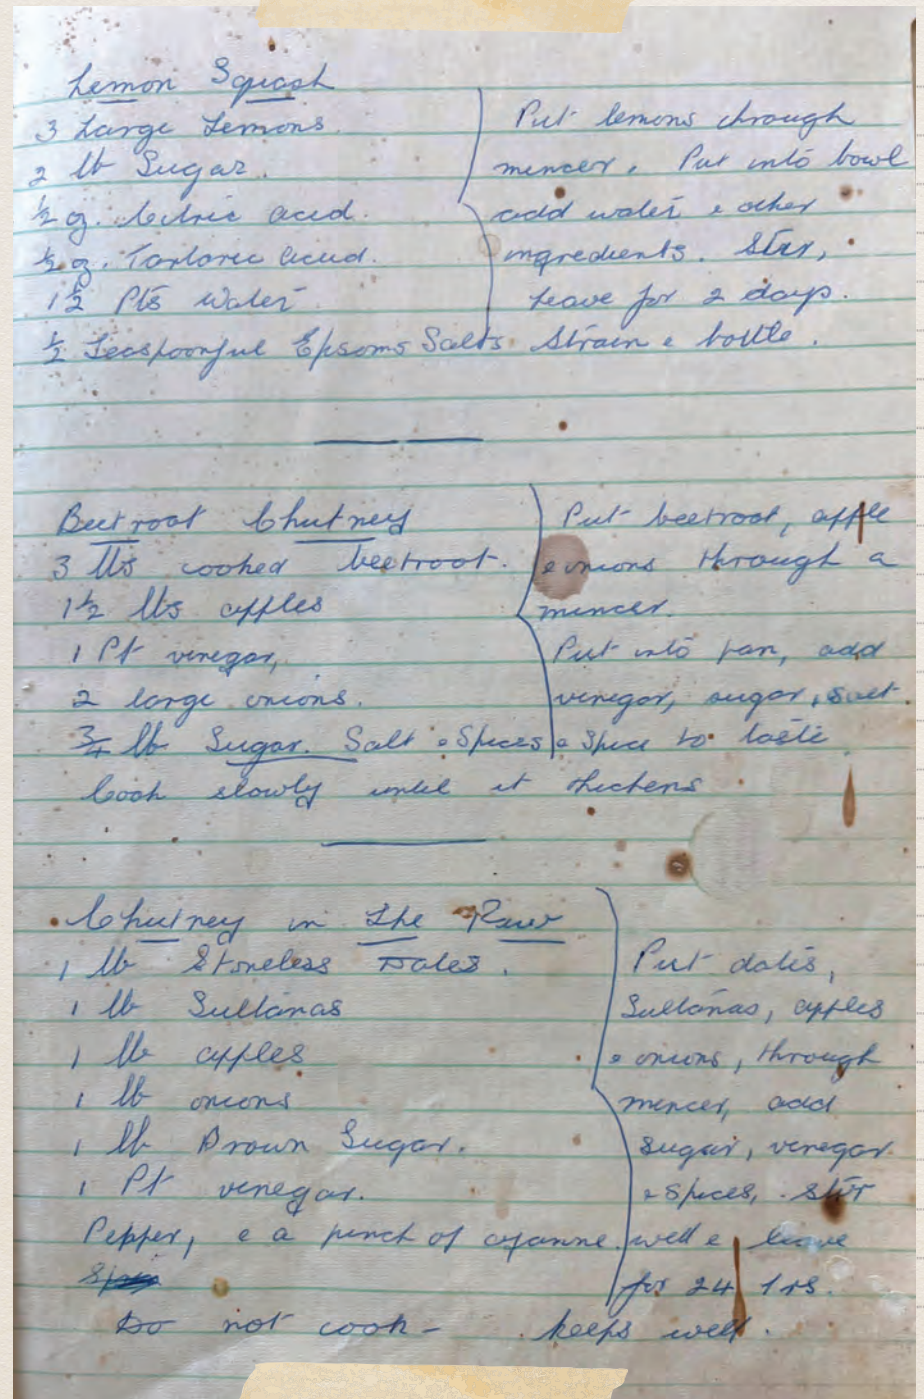 Lemon Squash
3 Large Lemons.
2 lb Sugar.
1/2 oz. Citric acid.
1/2 oz. Tartaric acid.
1 1/2 Pts Water
1/2 Teaspoonful Epsoms Salts.
Put lemons through
mincer. Put into bowl
add water & other
ingredients. Stir,
Leave for 2 days.
Strain & bottle.
Beetroot Chutney
3 lbs cooked beetroot.
1 1/2 lbs apples
1 Pt vinegar,
2 large onions.
3/4 lb Sugar. Salt & Spices
Put beetroot, apple
& onions through a
mincer.
Put into pan, add
vinegar, sugar, salt
& Spice to taste
Cook slowly until it thickens
Chutney in The Raw
1 lb Stoneless Dates.
1 lb Sultanas
1 lb apples
1 lb onions
1 lb Brown Sugar.
1 Pt vinegar.
Pepper, & a pinch of cyanne.
Put dates,
Sultanas, apples
& onions, through
mincer, add
sugar, vinegar
& Spices, stir
well & leave
for 24 hrs.
Do not cook - keeps well.